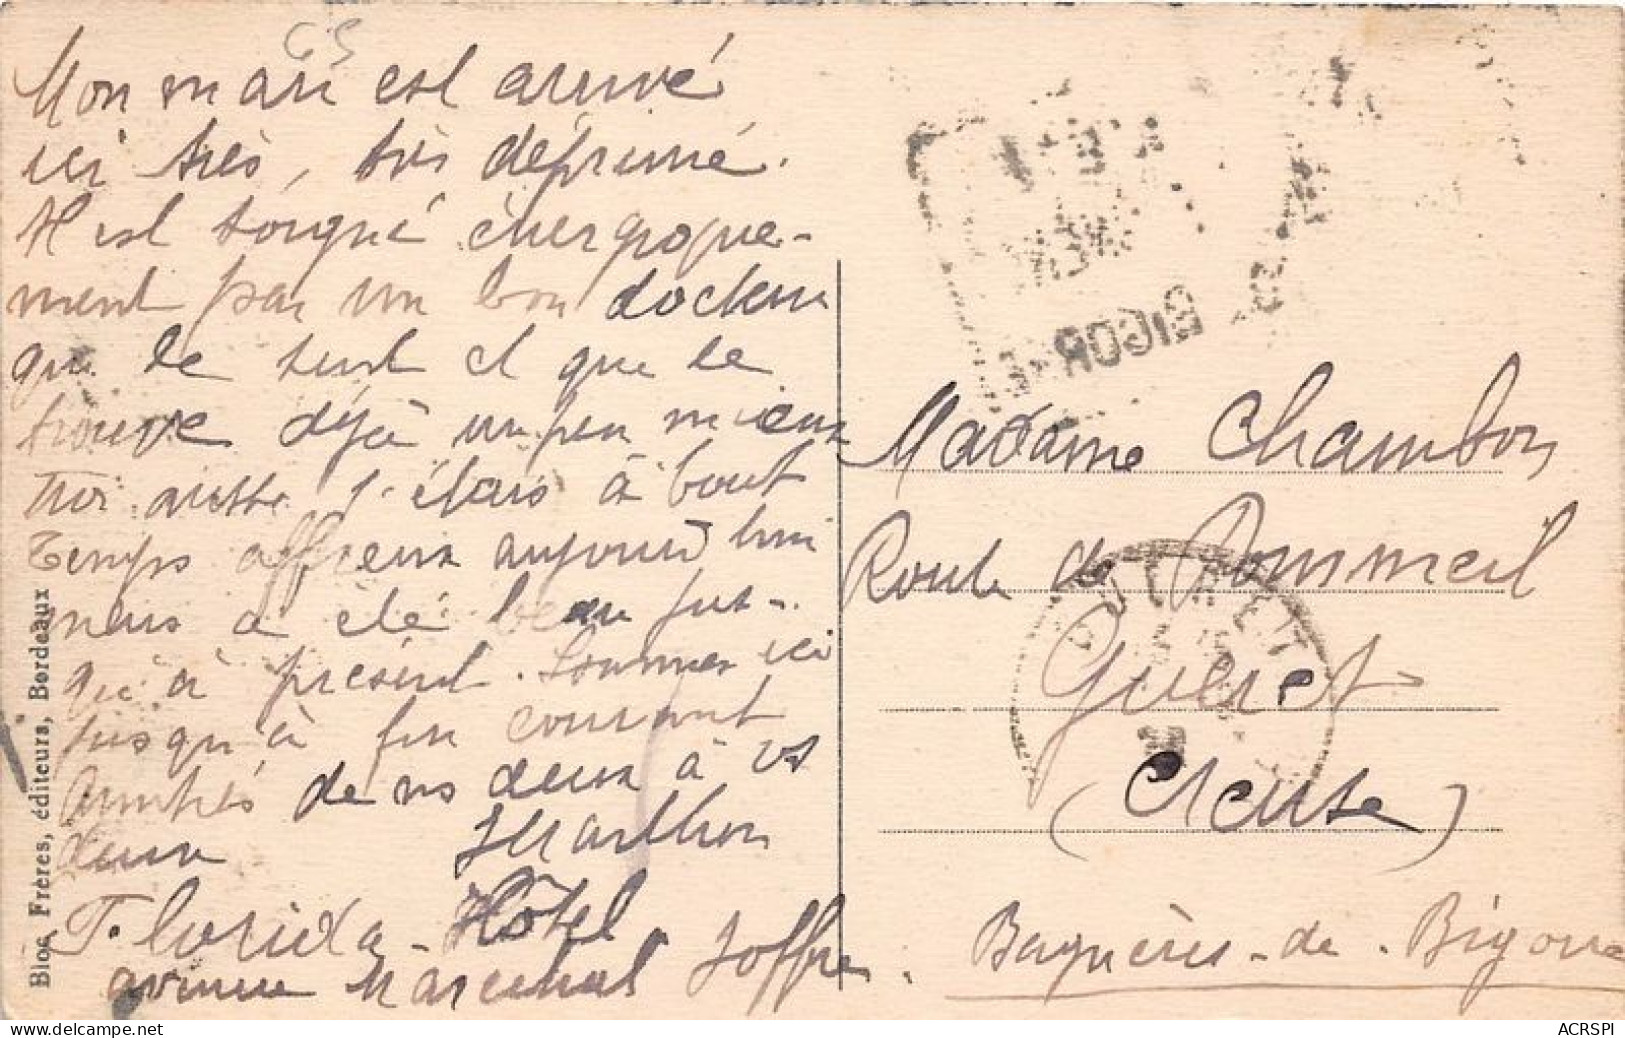 Mon mari est arrivé
ici très, très déprimé.
Il est soigné énergique-
ment par un bon docteur
qui le suit et que le
trouve déjà un peu mieux
Moi aussi j'étais à bout
Temps affreux aujourd'hui
mais a été beau jus-
qu'à présent. Sommes ici
jusqu'à fin courant
Amitiés de ns deux à vs
deux
Florida-Hôtel
avenue Maréchal Joffre. Bagnères-de-Bigorre
Madame Chambon
Route de Pommeil
Guéret
(Creuse)
GUERET
BIGOR
Bloc Frères, éditeurs, Bordeaux
ACRSPI